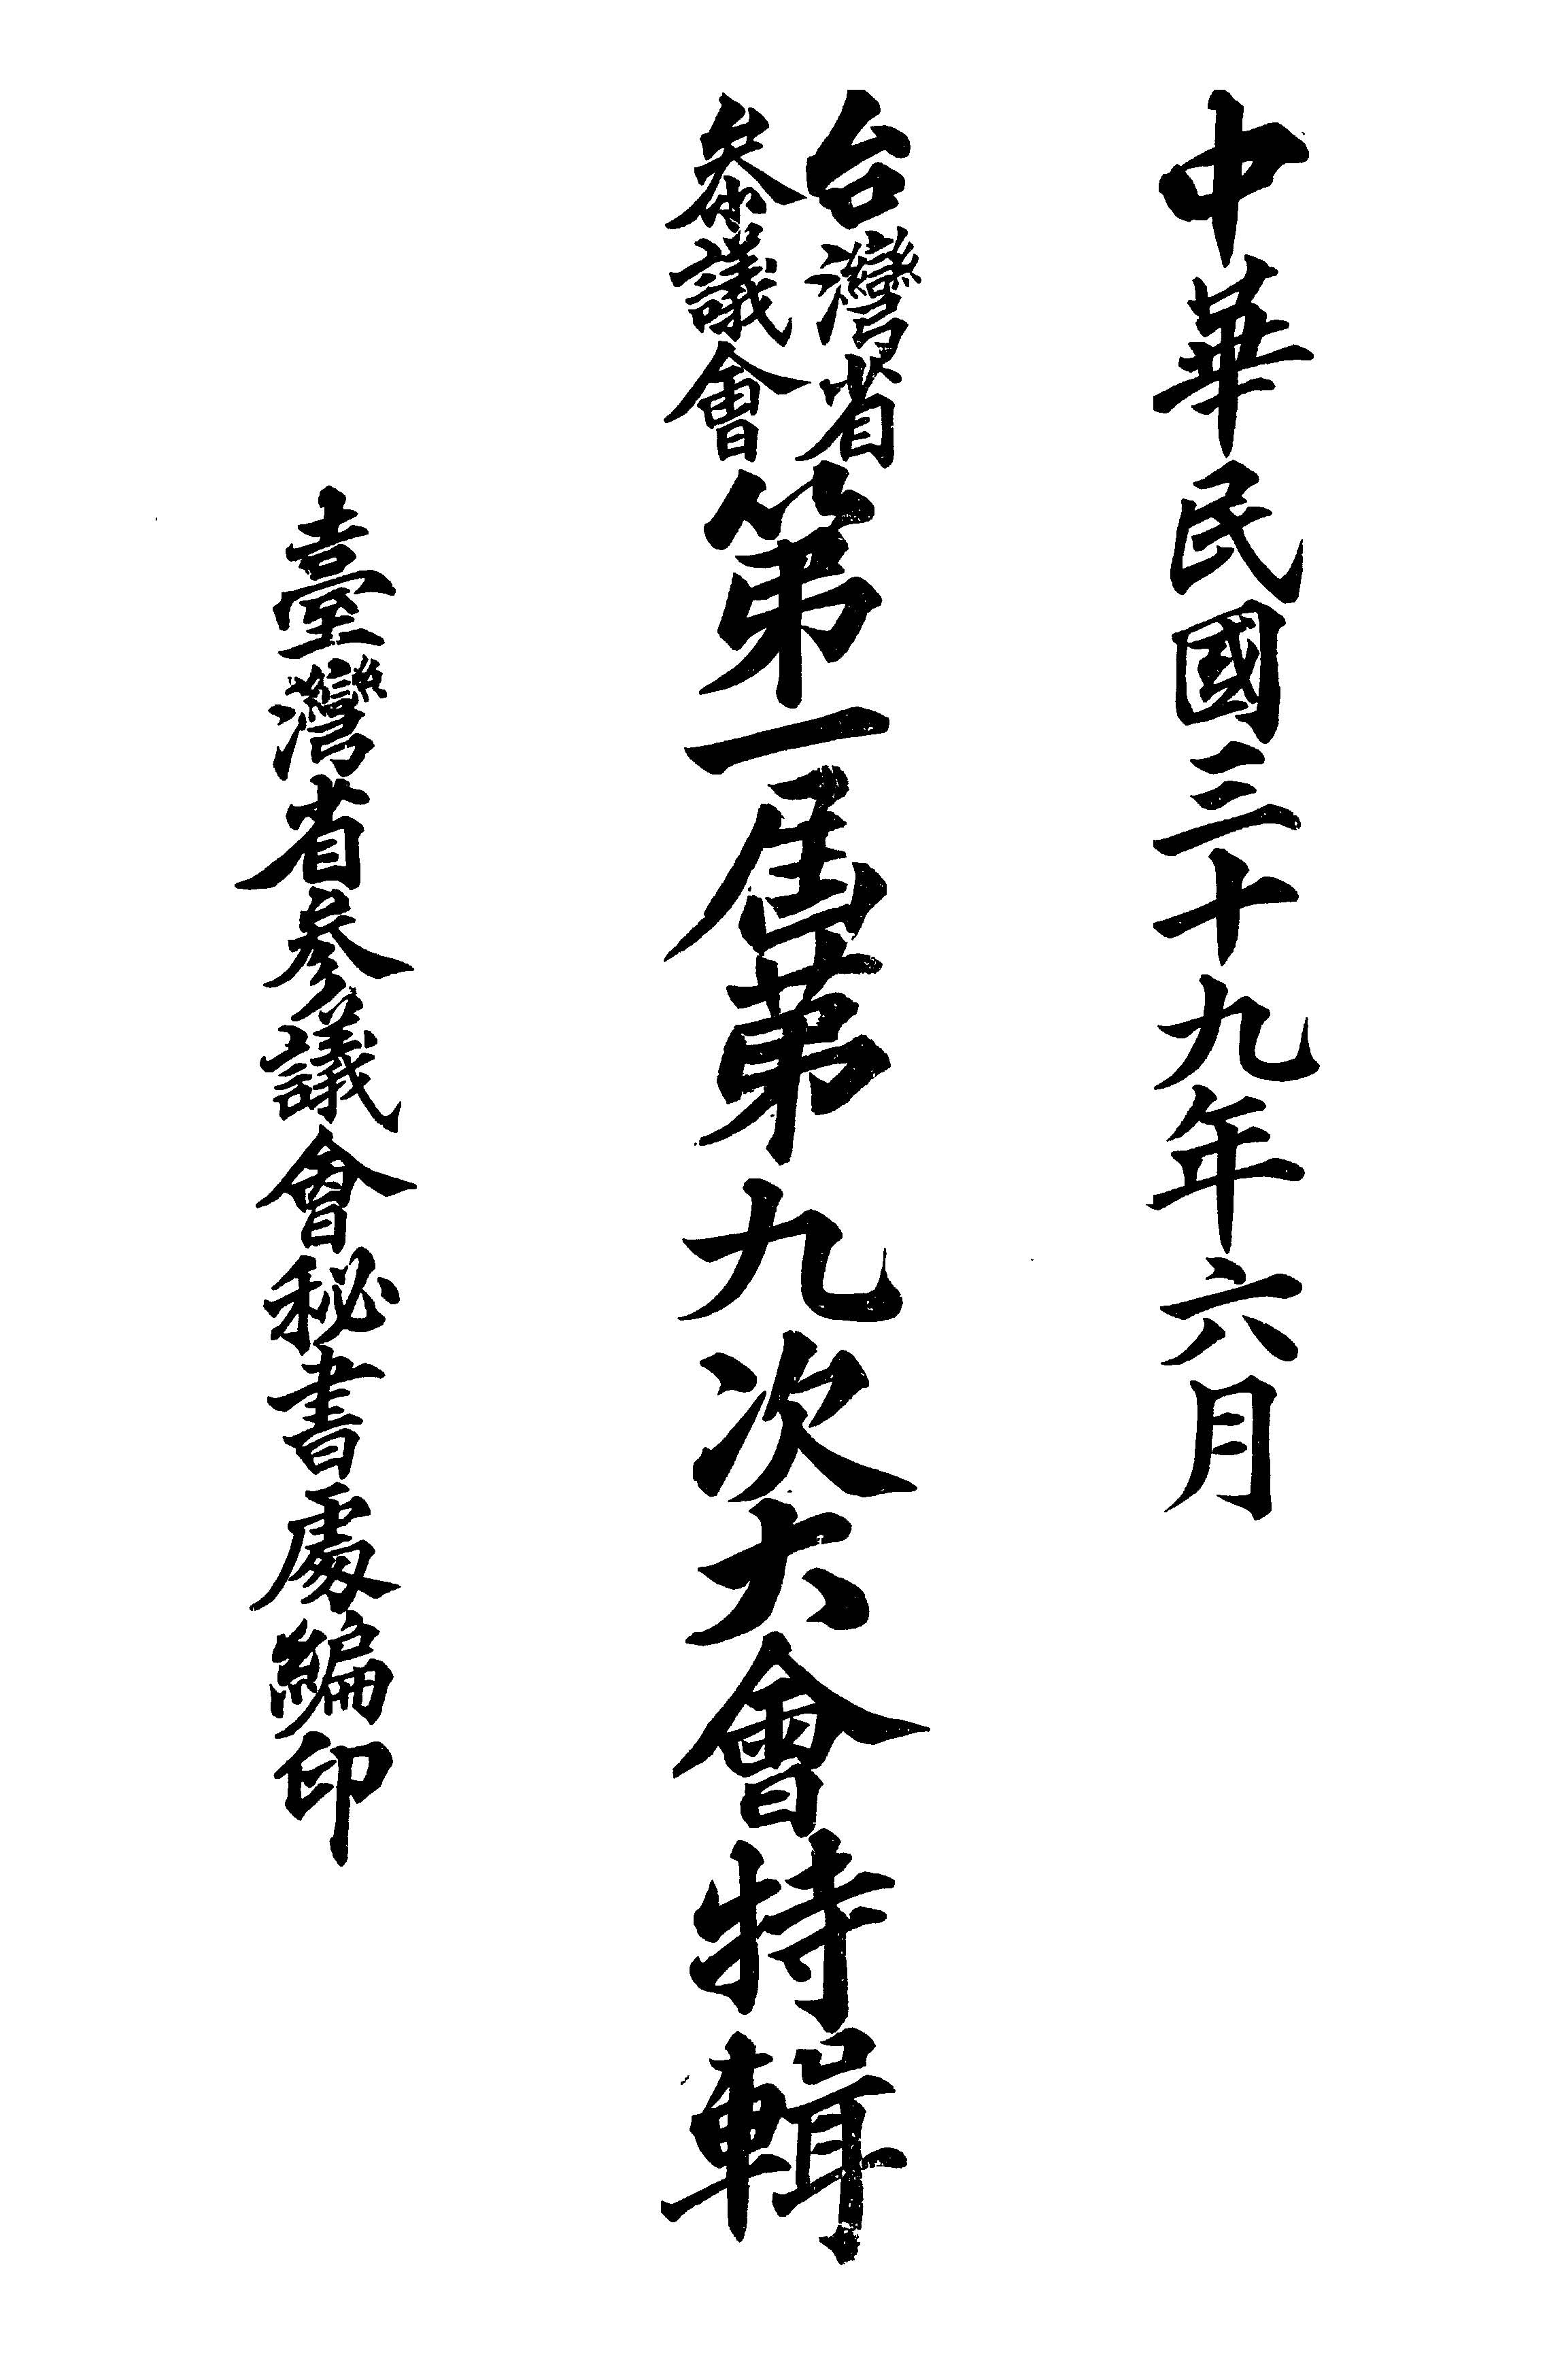 中華民國三十九年六月
台灣省
參議會
第一屆第九次大會特輯
臺灣省參議會秘書處編印